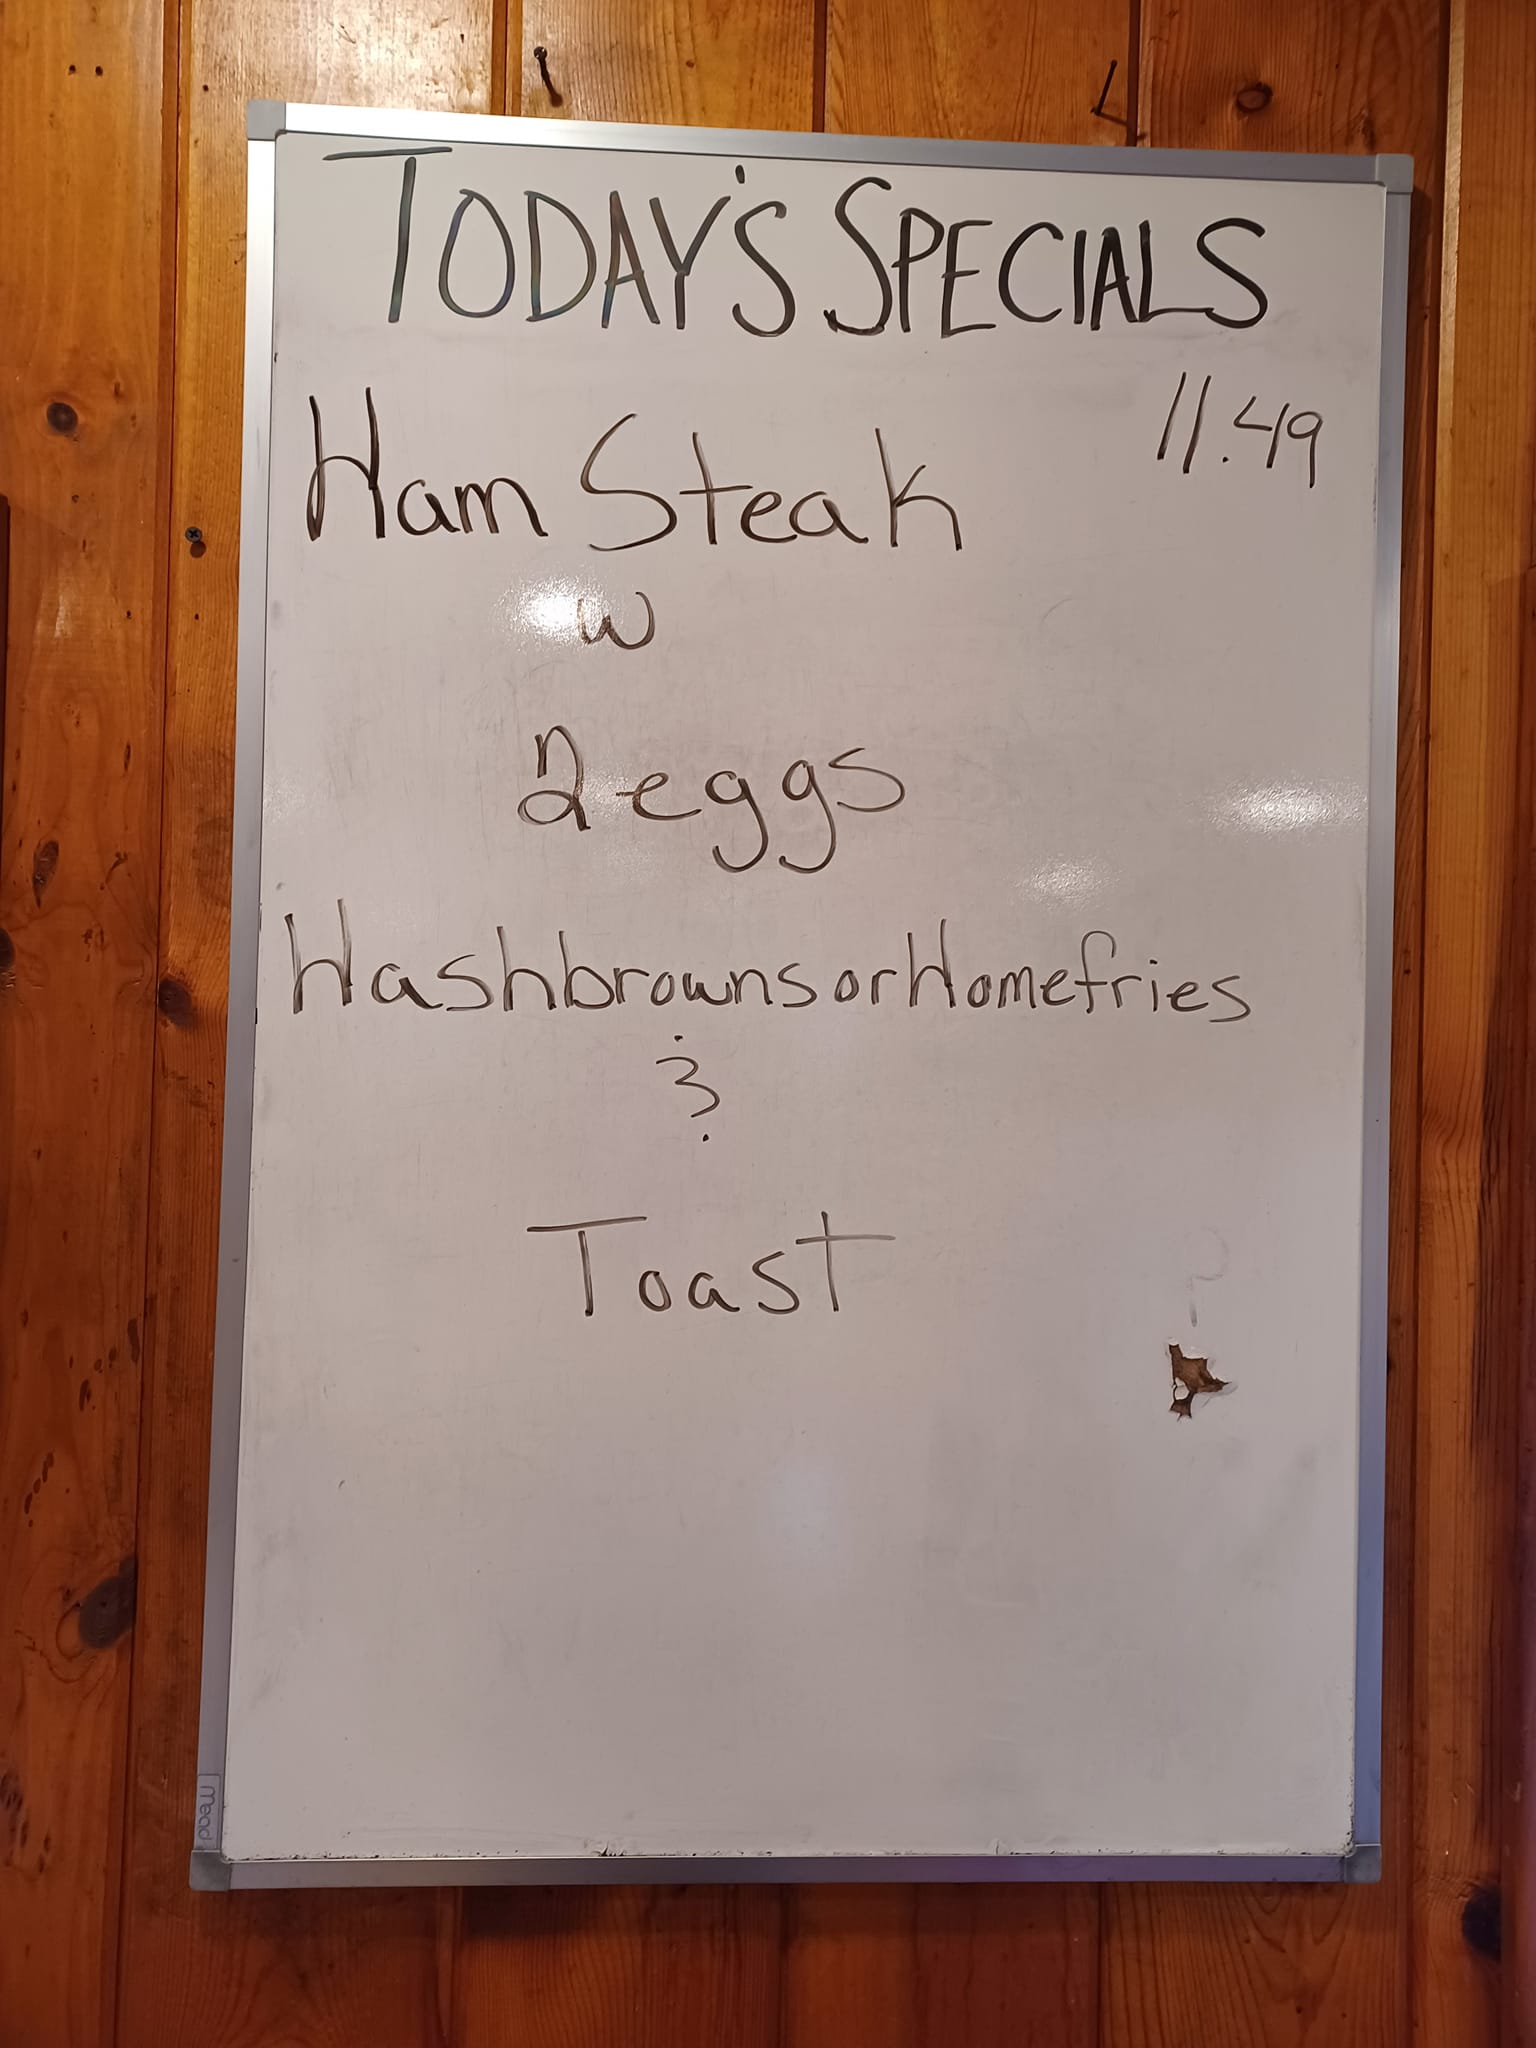 TODAY'S SPECIALS
Ham Steak 11.49
w
2 eggs
Hashbrowns or Homefries
&
Toast
?
Mead